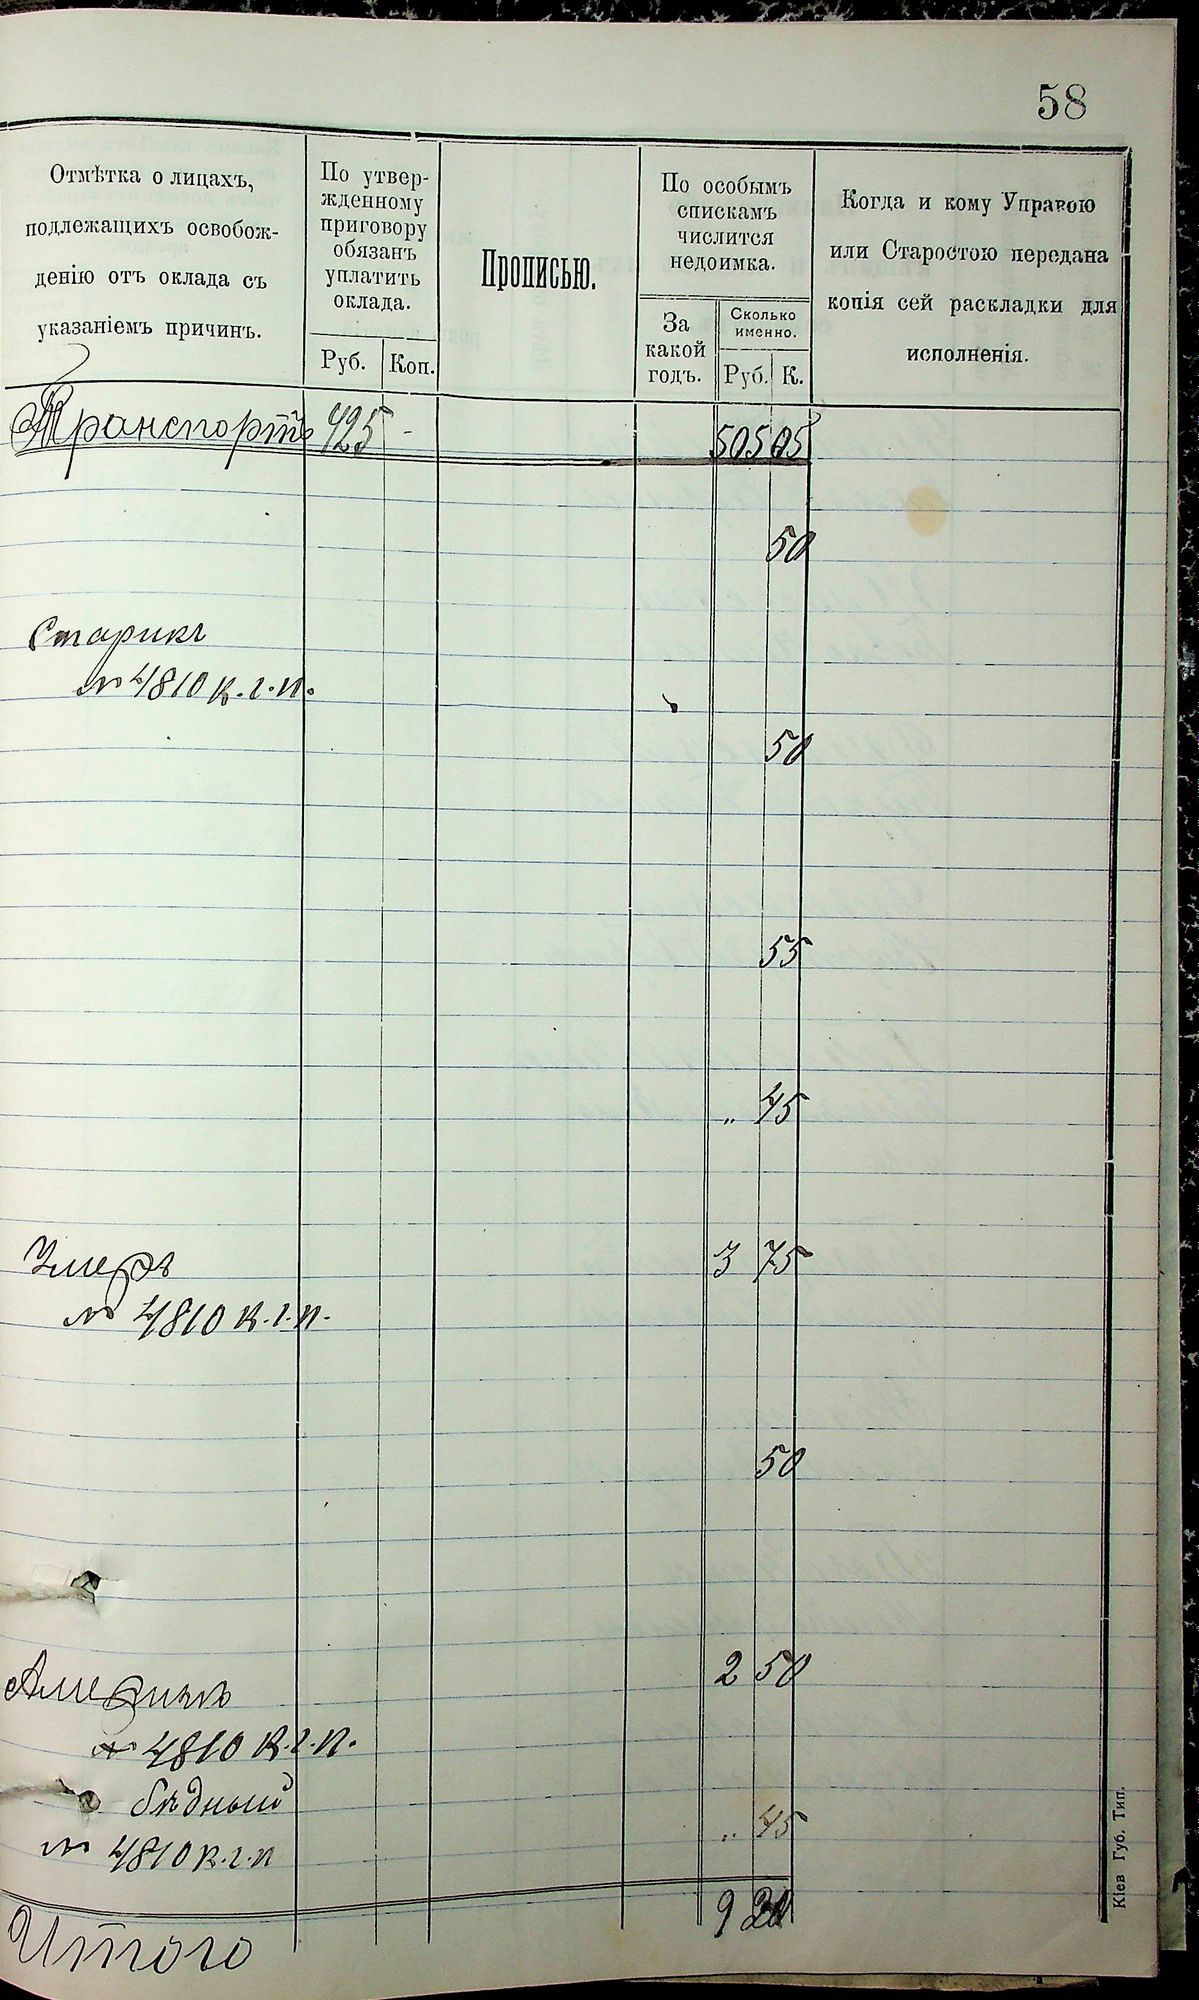 58
Отмѣтка о лицахъ,
подлежащихъ освобож-
денію отъ оклада съ
указаніемъ причинъ.
По утвер-
жденному
приговору
обязанъ
уплатить
оклада.
Руб. Коп.
Прописью.
По особымъ
спискамъ
числится
недоимка.
За
какой
годъ.
Сколько
именно.
Руб. К.
Когда и кому Управою
или Старостою передана
копія сей раскладки для
исполненія.
Транспортъ 425 - 505 05
50
Старикъ
№ 4810 к.г.п.
50
55
„ 45
Умеръ 3 75
№ 4810 к.г.п.
50
2 50
Америкѣ
№ 4810 к.г.п.
бѣдный
„ 45
№ 4810 к.г.п
Итого 9 20
Кіев Губ. Тип.